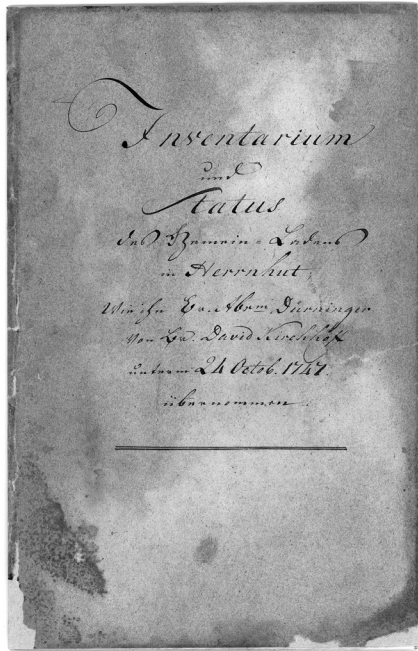 Inventarium
und
Status
des Gemein-Ladens
in Herrnhut,
Wie ihn Br. Abrm. Dürninger
von Br. David Kirchhof
unterm 24 Octob. 1747.
übernommen.